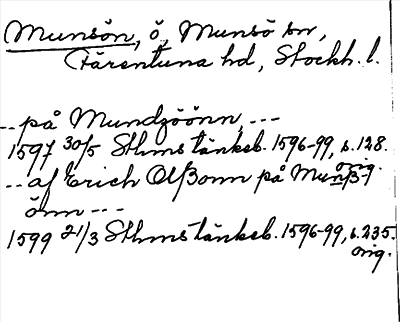 Munsön, ö, Munsö sn,
Färentuna hd, Stockh. l.
-- på Mundzöönn, ---
1597 30/5 Sthms tänkeb. 1596-99, s. 128.
orig.
-- af Erich Olßonn på Munß-
önn ---
1599 21/3 Sthms tänkeb. 1596-99, s. 235.
orig.